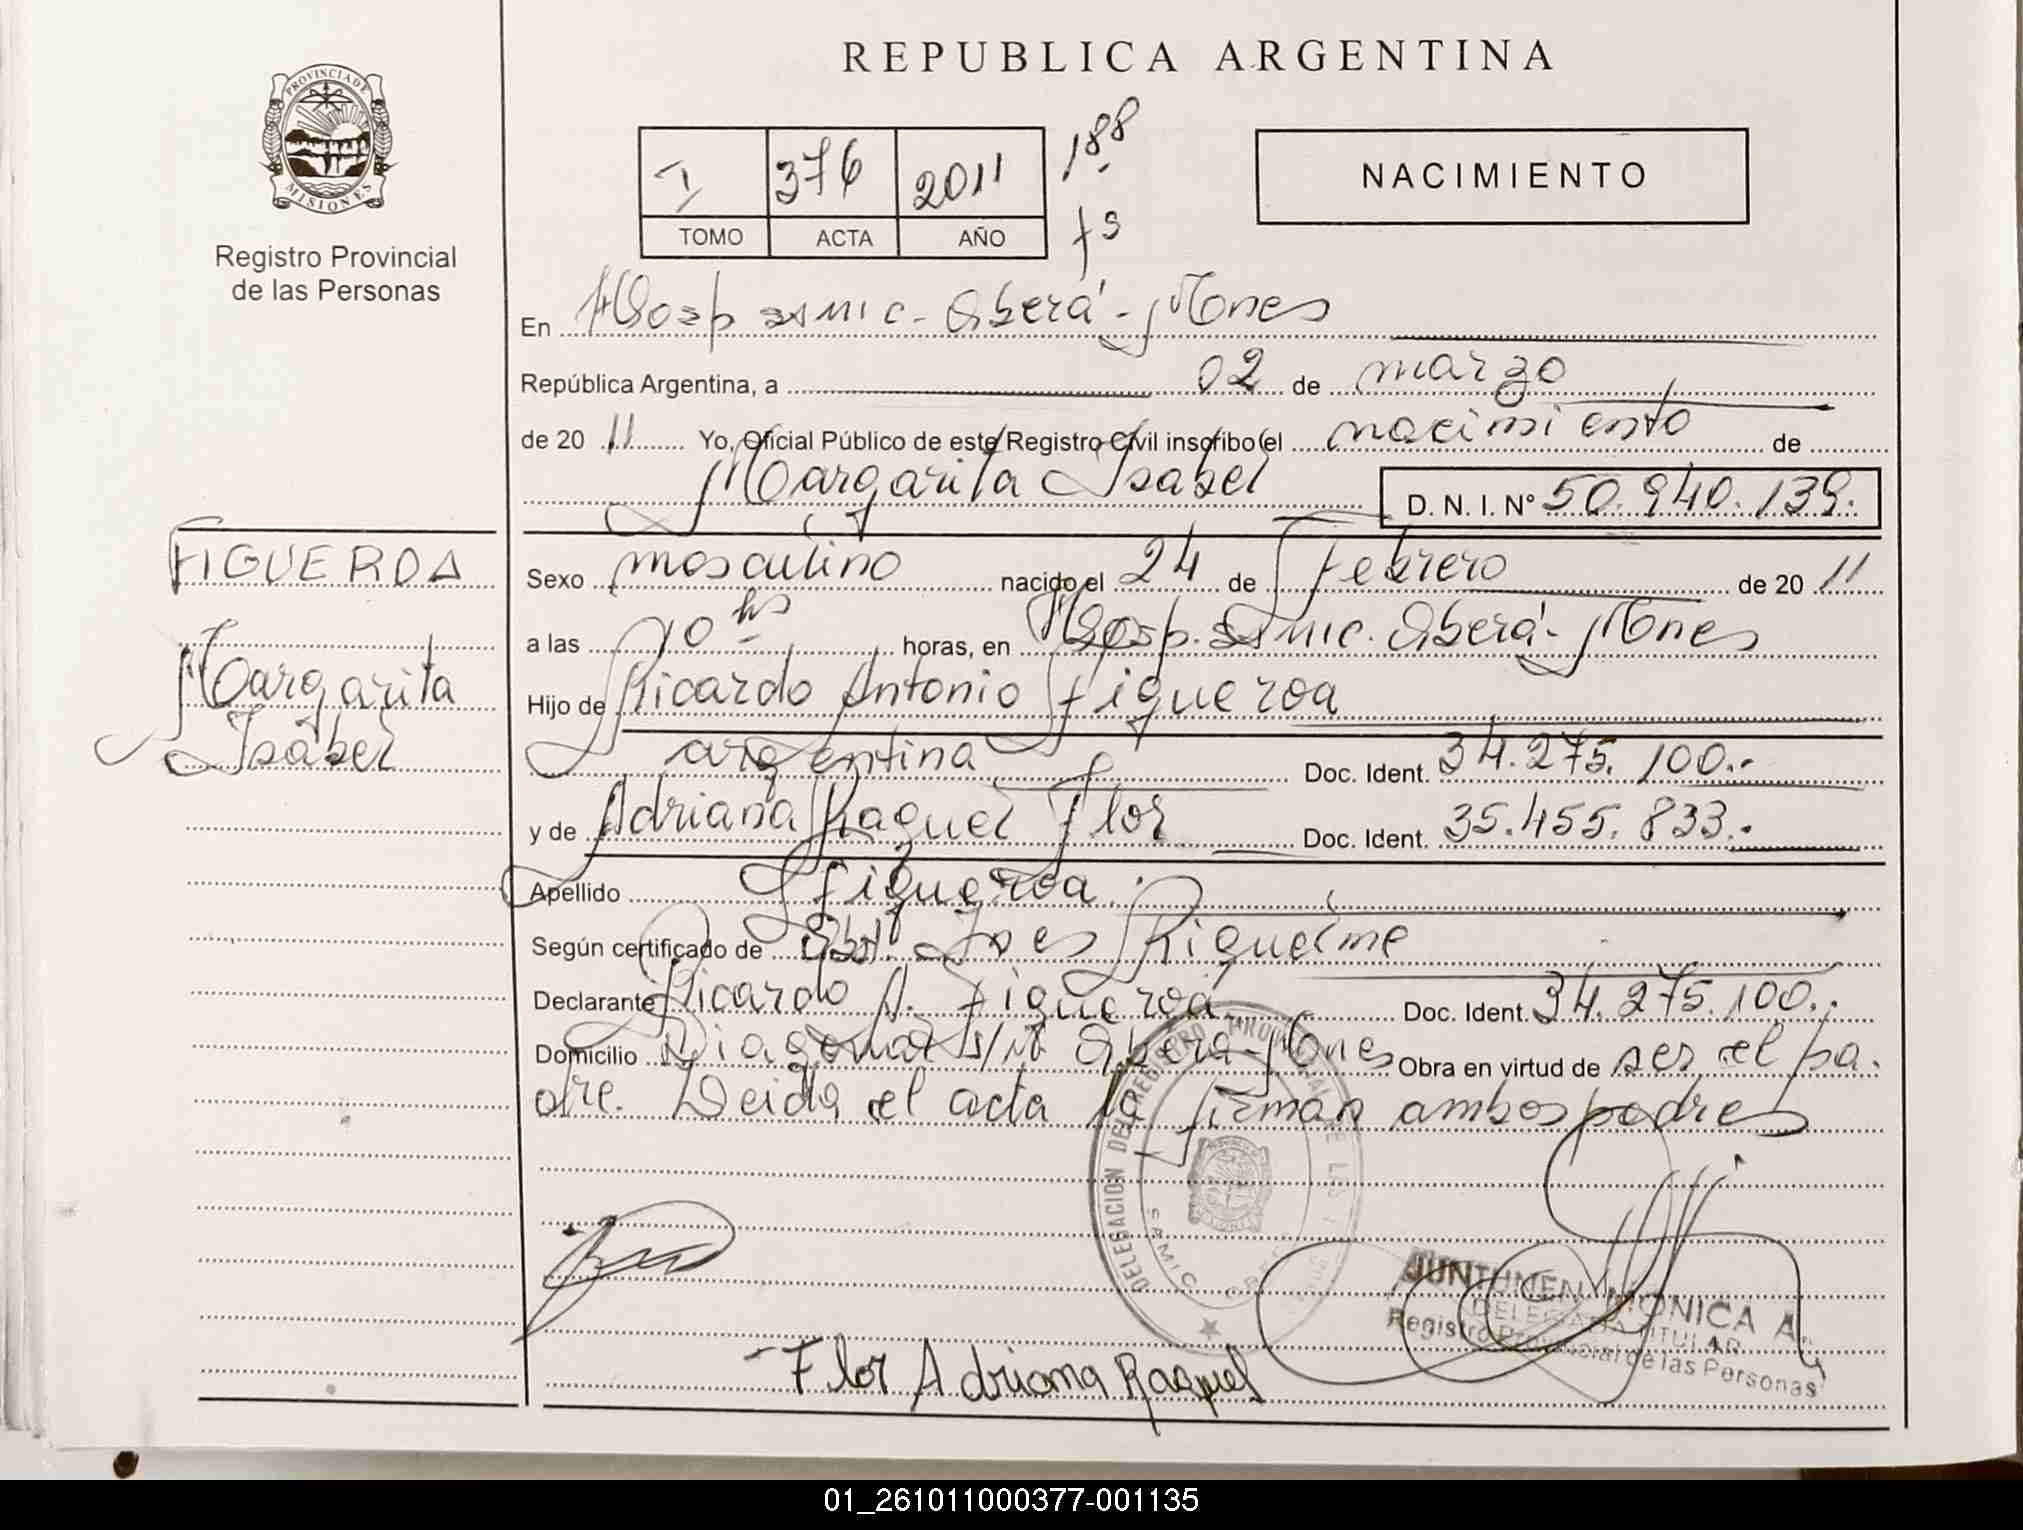 PROVINCIA DE
MISIONES
Registro Provincial
de las Personas
REPUBLICA ARGENTINA
I 376 2011 188
TOMO ACTA AÑO fs
NACIMIENTO
En Hosp. SAMIC - Oberá - Mnes
República Argentina, a 02 de marzo
de 20 11 Yo, Oficial Público de este Registro Civil inscribo el nacimiento de
Margarita Isabel D. N. I. Nº 50.940.139.
FIGUEROA
Margarita
Isabel
Sexo masculino nacido el 24 de Febrero de 20 11
a las 10 hs horas, en Hosp. SAMIC. Oberá - Mnes
Hijo de Ricardo Antonio Figueroa
argentina Doc. Ident. 34.275.100.-
y de Adriana Raquel Flor Doc. Ident. 35.455.833.-
Apellido Figueroa.
Según certificado de Obst. Ines Riquelme
Declarante Ricardo A. Figueroa Doc. Ident. 34.275.100.-
Domicilio Diagonal s/Nº Oberá - Mnes Obra en virtud de ser el pa-
dre. Leida el acta la firman ambos padres
DELEGACION DEL REGISTRO PROVINCIAL DE LAS
SAMIC
Flor Adriana Raquel
JUNTUNEN MONICA A.
DELEGADA TITULAR
Registro Provincial de las Personas
01_261011000377-001135